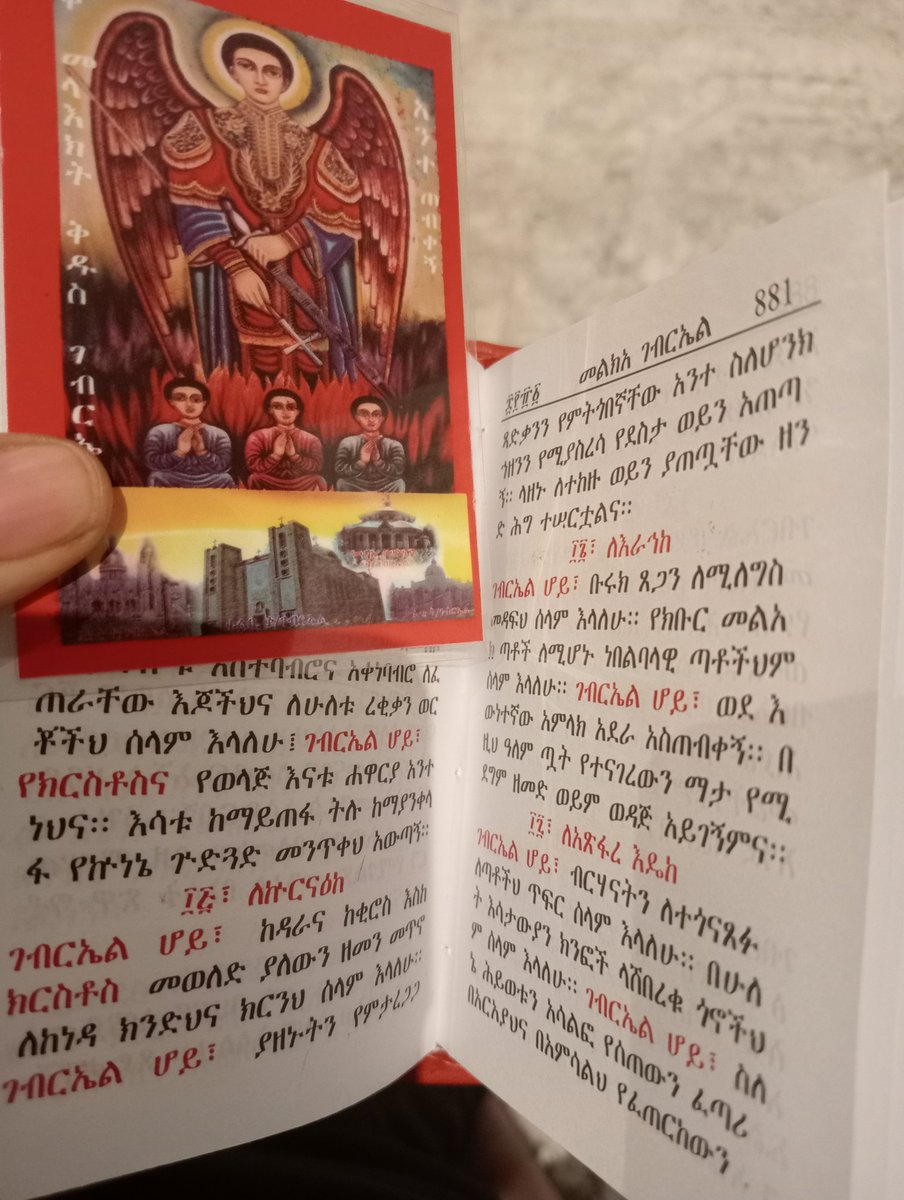 መላእክት ቅዱስ ገብርኤ
አንተ ጠብቀኝ
ጠራቸው እጆችህና ለሁለቱ ረቂቃን ወር
ቾችህ ሰላም እላለሁ፤ ገብርኤል ሆይ፣
የክርስቶስና የወላጅ እናቱ ሐዋርያ አንተ
ነህና። እሳቱ ከማይጠፋ ትሉ ከማያንቀላ
ፋ የኵነኔ ጕድጓድ መንጥቀህ አውጣኝ።
፲፭፣ ለኵርናዕከ
ገብርኤል ሆይ፣ ከዳራና ከቂሮስ እስከ
ክርስቶስ መወለድ ያለውን ዘመን መጥኖ
ለከነዳ ክንድህና ክርንህ ሰላም እላለሁ።
ገብርኤል ሆይ፣ ያዘኑትን የምታረጋጋ
መልክአ ገብርኤል 881
ጻድቃንን የምትጎበኛቸው አንተ ስለሆንክ
ኀዘንን የሚያስረሳ የደስታ ወይን አጠጣ
ኝ። ላዘኑ ለተከዙ ወይን ያጠጧቸው ዘን
ድ ሕግ ተሠርቷልና።
፲፮፣ ለእራኅከ
ገብርኤል ሆይ፣ ቡሩክ ጸጋን ለሚለግስ
መዳፍህ ሰላም እላለሁ። የክቡር መልአ
ክ ጣቶች ለሚሆኑ ነበልባላዊ ጣቶችህም
ሰላም እላለሁ። ገብርኤል ሆይ፣ ወደ እ
ውነተኛው አምላክ አደራ አስጠብቀኝ። በ
ዚህ ዓለም ጧት የተናገረውን ማታ የሚ
ደግም ዘመድ ወይም ወዳጅ አይገኝምና።
፲፯፣ ለአጽፋረ እዴከ
ገብርኤል ሆይ፣ ብርሃናትን ለተጎናጸፉ
ለጣቶችህ ጥፍር ሰላም እላለሁ። በሁለ
ት እሳታውያን ክንፎች ላሸበረቁ ጎኖችህ
ም ሰላም እላለሁ። ገብርኤል ሆይ፣ ስለ
ኔ ሕይወቱን አሳልፎ የሰጠውን ፈጣሪ
በአርአያህና በአምሳልህ የፈጠርከውን